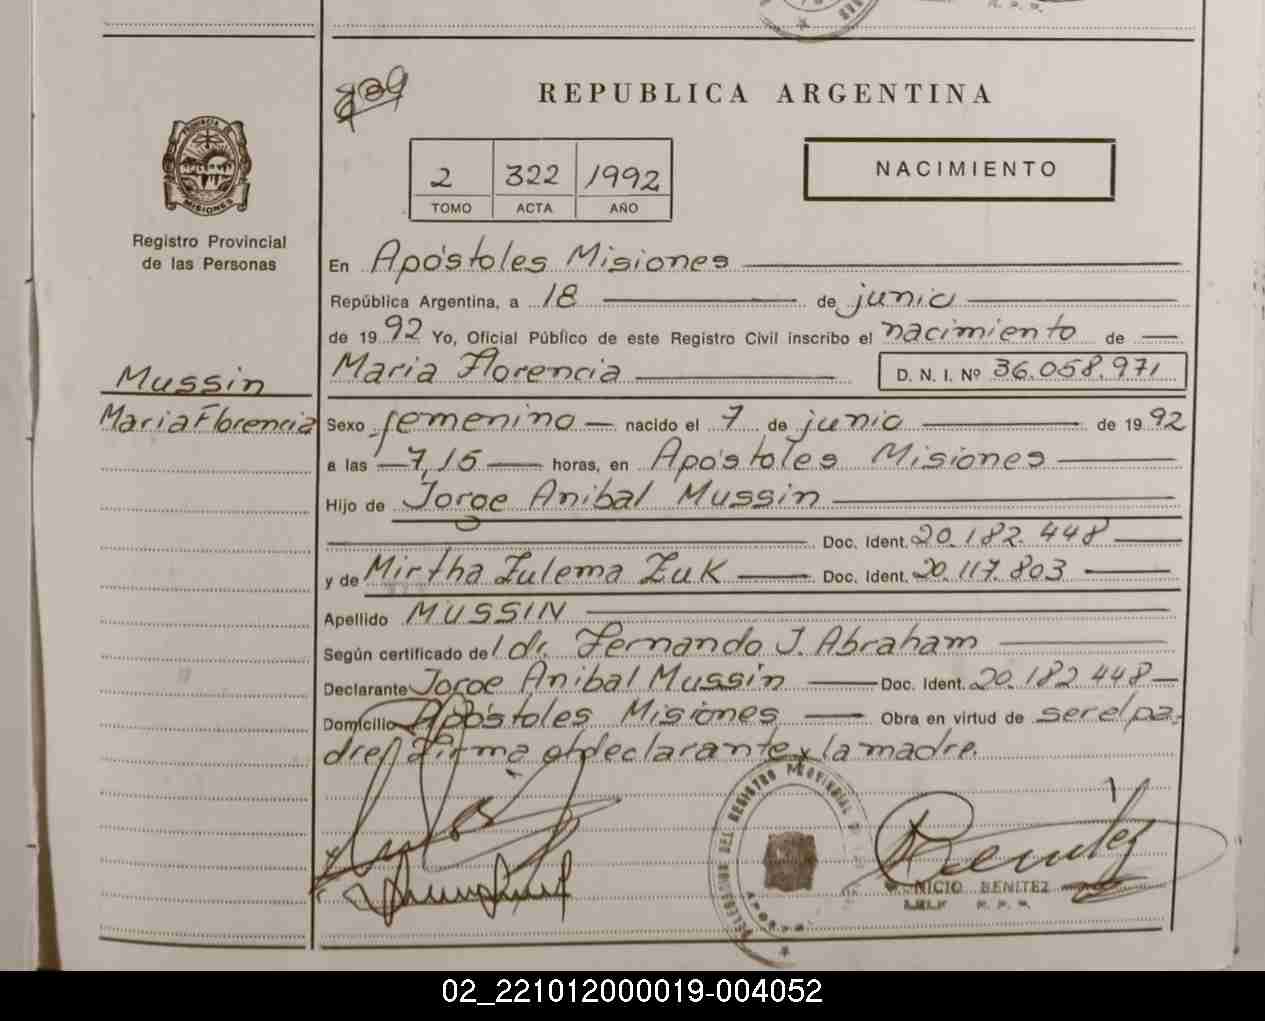 REPUBLICA ARGENTINA
2 322 1992
TOMO ACTA AÑO
NACIMIENTO
PROVINCIA DE
MISIONES
Registro Provincial
de las Personas
Mussin
Maria Florencia
En Apóstoles Misiones
República Argentina, a 18 de junio
de 1992 Yo, Oficial Público de este Registro Civil inscribo el nacimiento de
Maria Florencia D. N. I. Nº 36.058.971
Sexo femenino nacido el 7 de junio de 1992
a las 7,15 horas, en Apóstoles Misiones
Hijo de Jorge Anibal Mussin
Doc. Ident. 20.182.448
y de Mirtha Zulema Zuk Doc. Ident. 20.117.803
Apellido MUSSIN
Según certificado del dr. Fernando J. Abraham
Declarante Jorge Anibal Mussin Doc. Ident. 20.182.448
Domicilio Apóstoles Misiones Obra en virtud de ser el pa-
dre. Firma el declarante y la madre.
DELEGACION DEL REGISTRO PROVINCIAL
Benitez
BENITEZ
02_221012000019-004052